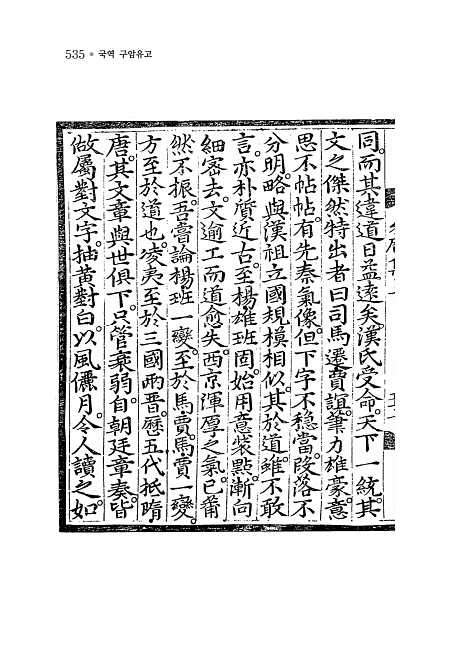 535 ● 국역 구암유고
同。而其違道日益遠矣。漢氏受命。天下一統。其
文之傑然特出者曰司馬遷賈誼。筆力雄豪意
思不帖帖。有先秦氣像。但下字不穩當。段落不
分明。略與漢祖立國規模相似。其於道。雖不敢
言。亦朴質近古。至楊雄班固。始用意裝點。漸向
細密去。文逾工而道愈失。西京渾厚之氣。已薾
然不振。吾嘗論楊班一變。至於馬賈。馬賈一變。
方至於道也。凌夷至於三國兩晋。歷五代抵隋
唐。其文章與世俱下。只管衰弱。自朝廷章奏。皆
做屬對文字。抽黃對白。以風儷月。令人讀之如